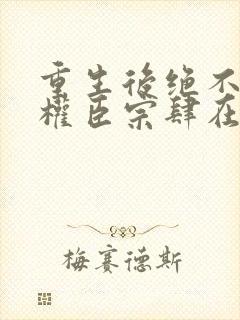 重生後绝不
權臣宗肆在
梅賽德斯